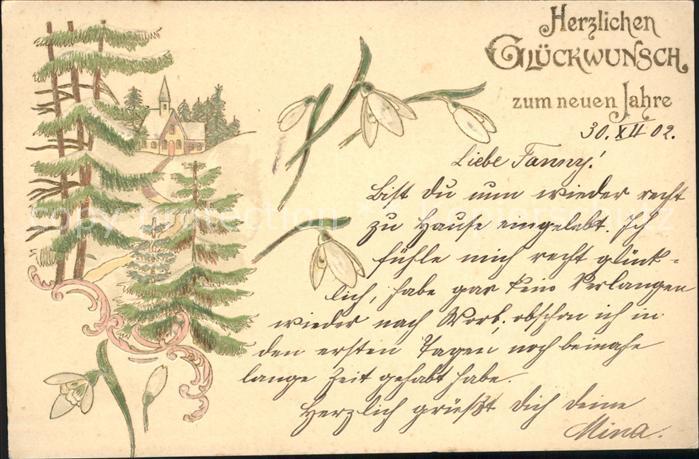 Herzlichen
GLÜCKWUNSCH
zum neuen Jahre
30. XII 02.
Liebe Fanny!
Bist du nun wieder recht
zu Hause eingelebt. Ich
fühle mich recht glück-
lich, habe gar kein Verlangen
wieder nach Worb, obschon ich in
den ersten Tagen noch beinahe
lange Zeit gehabt habe.
Herzlich grüßt Dich deine
Mina.